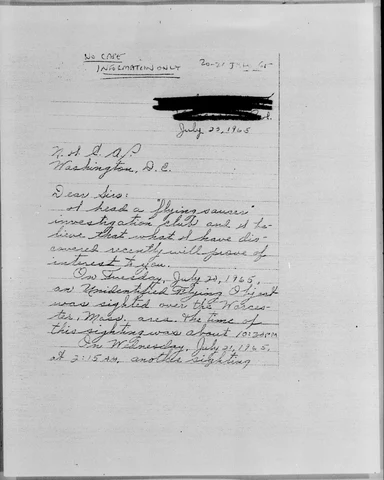 NO CASE
INFORMATION ONLY
20-21 July 65
July 23, 1965
N. A. S. A.
Washington, D.C.
Dear Sirs:
I head a "flying saucer"
investigation club and I be-
lieve that what I have dis-
covered recently will prove of
interest to you.
On Tuesday, July 20, 1965,
an Unidentified Flying Object
was sighted over the Worces-
ter, Mass. area. The time of
this sighting was about 10:20 PM
On Wednesday, July 21, 1965,
at 2:15 AM, another sighting